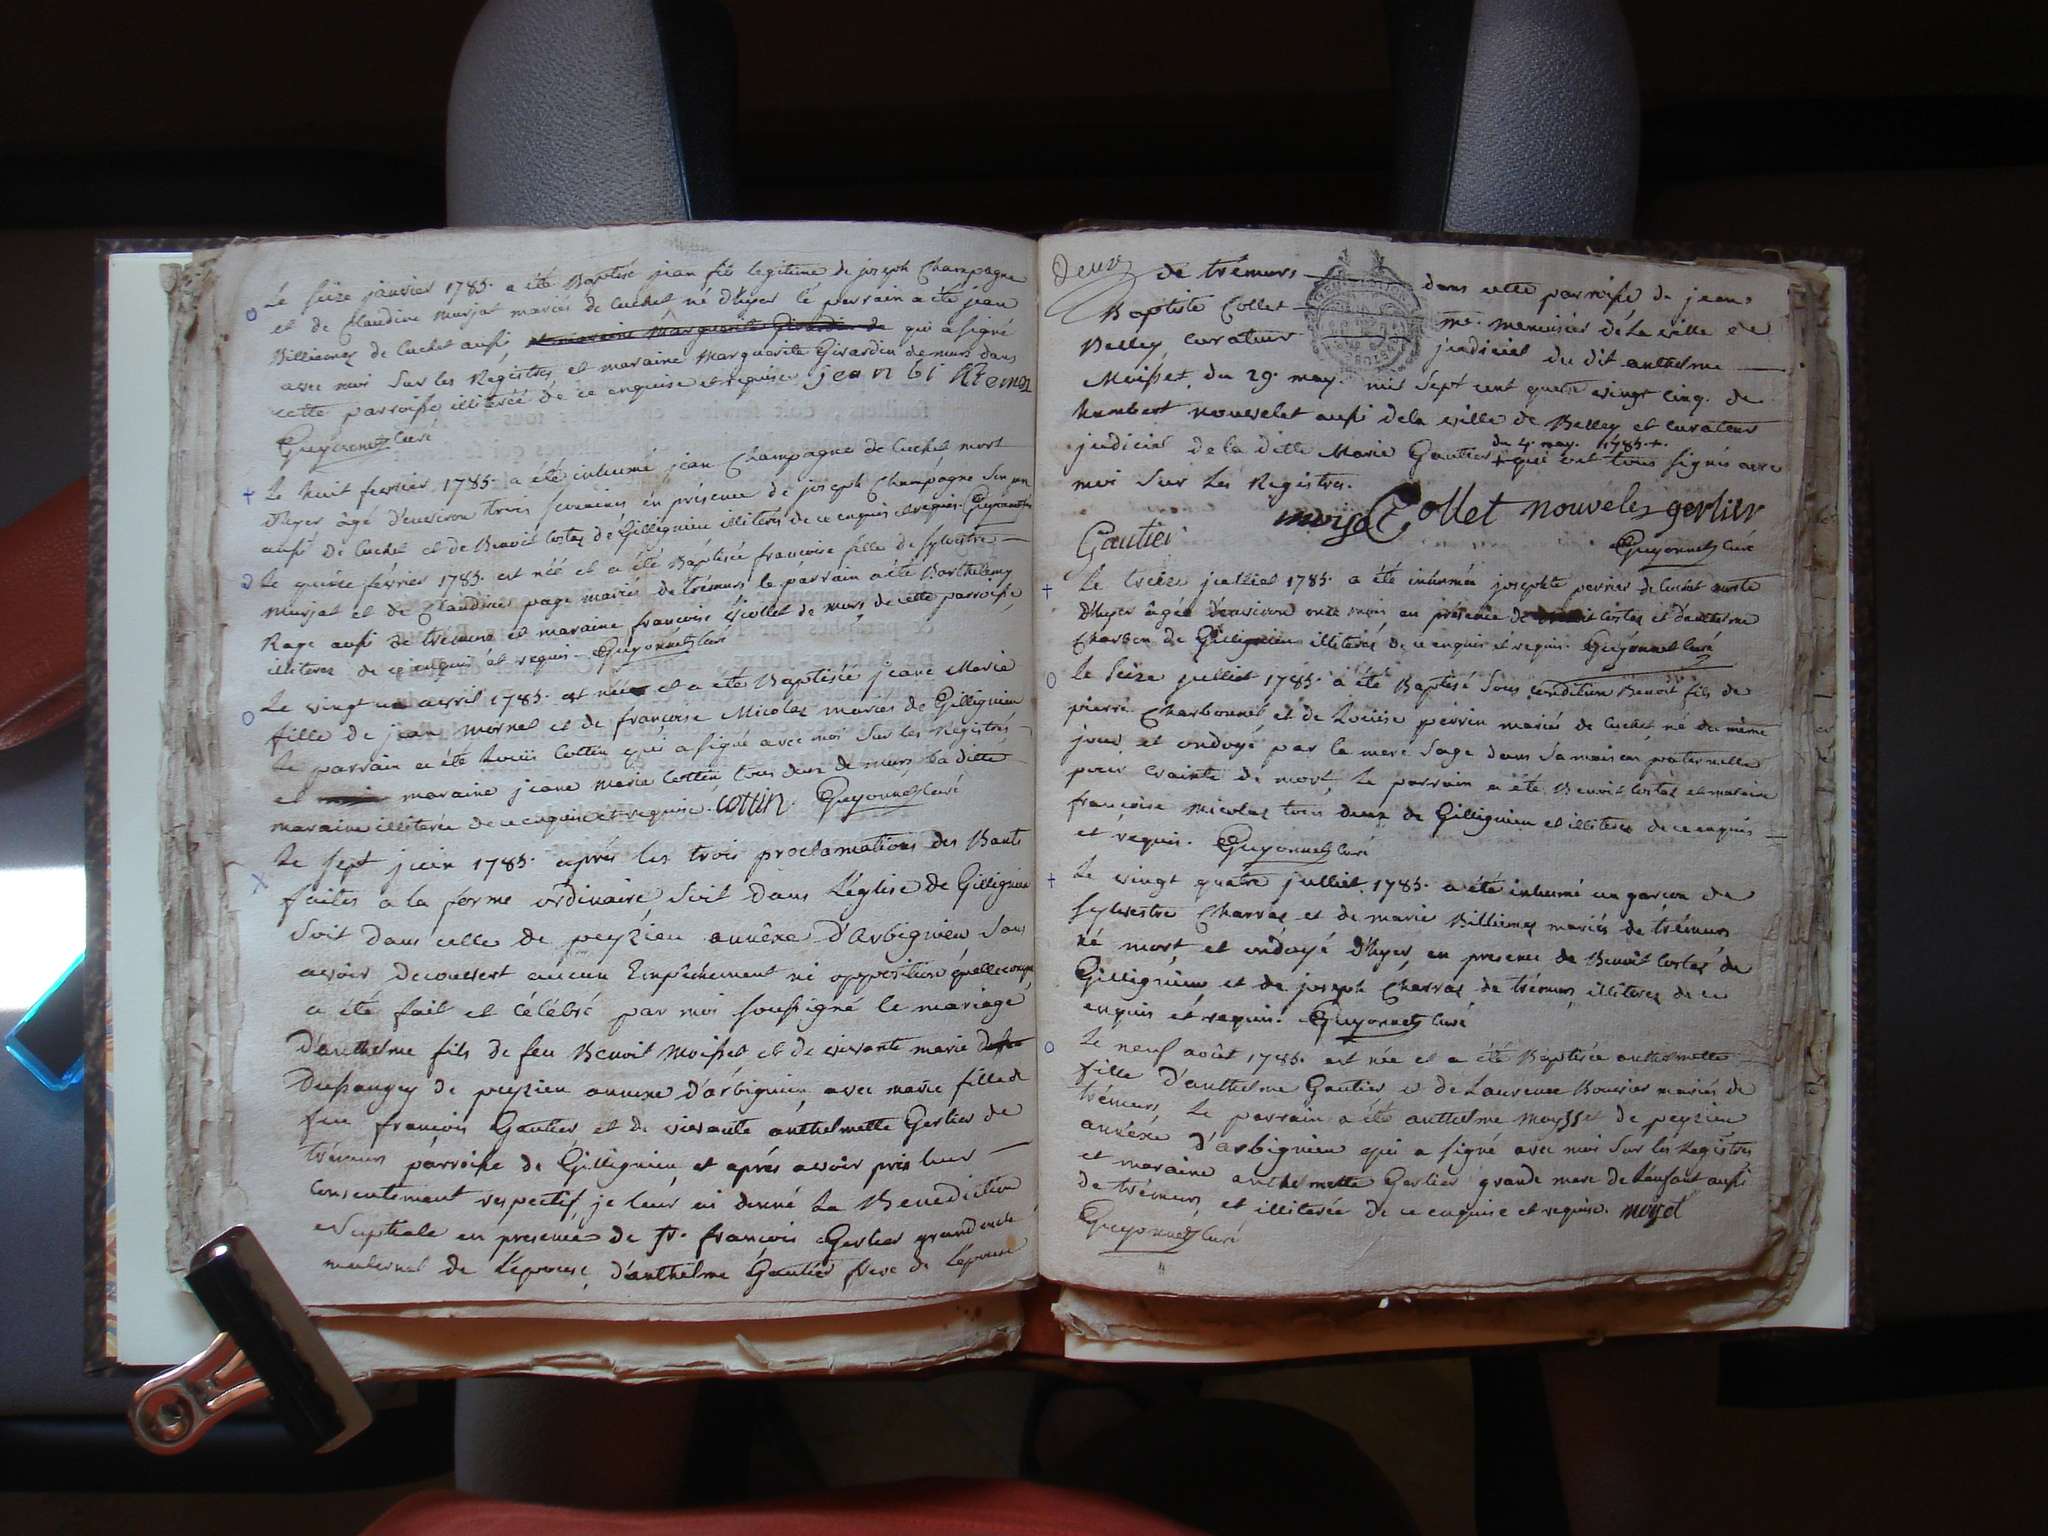 Le seize janvier 1785. a été Baptisé jean fils legitime de joseph Champagne
et de Claudine murjat mariés de Cuchet né d'hyer le parrain a été jean
Billiemaz de Cuchet aussi et maraine Marguerite Girardin de qui a signé
avec moi sur les Registres et maraine Marguerite Girardin de murs dans
cette parroisse illiterée de ce enquise et requise. jean bi
Guyonnet curé
Le huit fevrier 1785. a été inhumé jean Champagne de Cuchet mort
d'hyer âgé d'environ trois semaines en présence de joseph Champagne son
aussi de Cuchet et de Benoit Costaz de Gillignieu illiterés de ce enquis et requis. Guyonnet
Le quinze février 1785. est née et a été Baptisée francoise fille de sylvestre
murjat et de Claudine page mariés de trémurs le parrain a été Barthelemy
Page aussi de trémurs et maraine francoise de murs de cette parroisse
illiterés de ce enquis et requis. Guyonnet curé
Le vingt un avril 1785. est née et a été Baptisée jeane Marie
fille de jean mornet et de francoise Micolaz mariés de Gillignieu
Le parrain a été Louis Cottin qui a signé avec moi sur les Registres
et maraine jeane marie Cottin tous deux de murs, la ditte
maraine illiterée de ce enquise et requise. cottin. Guyonnet curé
Le sept juin 1785. aprés les trois proclamations des Bants
faites a la forme ordinaire soit dans l'église de Gillignieu
soit dans celle de peyzieu annéxe d'arbignieu sans
avoir decouvert aucun Empêchement ni opposition quelleconque
a été fait et célébré par moi soussigné le mariage
d'anthelme fils de feu Benoit moisset et de vivante marie
de peyzieu annexe d'arbignieu, avec marie fille de
feu francois Gautier et de vivante anthelmette Gerlier de
trémurs parroisse de Gillignieu, et aprés avoir pris leur
consentement respectif, je leur ai donné la Benediction
Nuptiale en presence de Sr. francois Gerlier grand oncle
maternel de l'épouse, d'anthelme Gautier frere de l'épouse
Deux de trémurs dans cette parroisse de jean
Baptiste Collet me. menuisier de la ville de
Belley curateur judiciel du dit anthelme
Moisset, du 29. may. mil sept cent quatre vingt cinq. de
humbert nouvelet aussi de la ville de Belley et curateur
judiciel de la ditte Marie Gautier + qui ont tous signés avec
du 4. may. 1785. +.
moi sur les Registres.
moiset Collet nouvelet gerlier
Gautier
Guyonnet curé
Le treize juilliet 1785. a été inhumée josephte perrier de Cuchet morte
d'hyer âgée d'environ onze mois en présence de Costaz et d'anthelme
Charbon de Gillignieu illiterés de ce enquis et requis. Guyonnet curé
Le seize juilliet 1785. a été Baptisé sous condition Benoit fils de
pierre Charbonnet et de Louise perrin mariés de Cuchet, né du même
jour et ondoyé par la mere sage dans sa maison paternelle
pour crainte de mort, le parrain a été Benoit Costaz et maraine
francoise micolaz tous deux de Gillignieu et illiterés de ce enquis
et requis. Guyonnet curé
Le vingt quatre julliet 1785. a été inhumé un garçon de
sylvestre Charraz et de marie Billiemaz mariés de trémurs
né mort et ondoyé d'hyer, en presence de Benoit Costaz de
Gillignieu et de joseph Charraz de trémurs illiterés de ce
enquis et requis. Guyonnet curé
Le neuf août 1785. est née et a été Baptisée anthelmette
fille d'anthelme Gautier et de Laurence Bouvier mariés de
trémurs, le parrain a été anthelme moysset de peyzieu
annéxe d'arbignieu qui a signé avec moi sur les Registres
et maraine anthelmette Gerlier grande mere de l'enfant aussi
de trémurs et illiterée de ce enquise et requise. moyset
Guyonnet curé